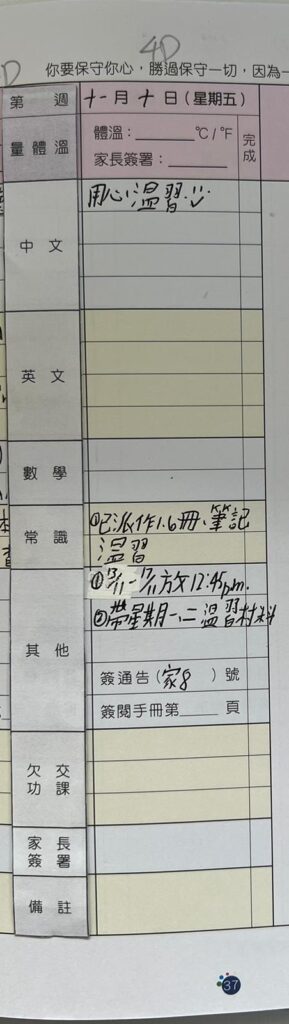 4D
你要保守你心，勝過保守一切，因為一
第 週 十一月十日（星期五）
量體溫 體溫：______℃/℉ 完成
家長簽署：______
中文 用心溫習
英文
數學
常識 ①已派作1.6冊、筆記
溫習
其他 ①13/11-17/11放12:45pm.
②帶星期一、二溫習材料
簽通告（家8）號
簽閱手冊第____頁
欠交功課
家長簽署
備註
37